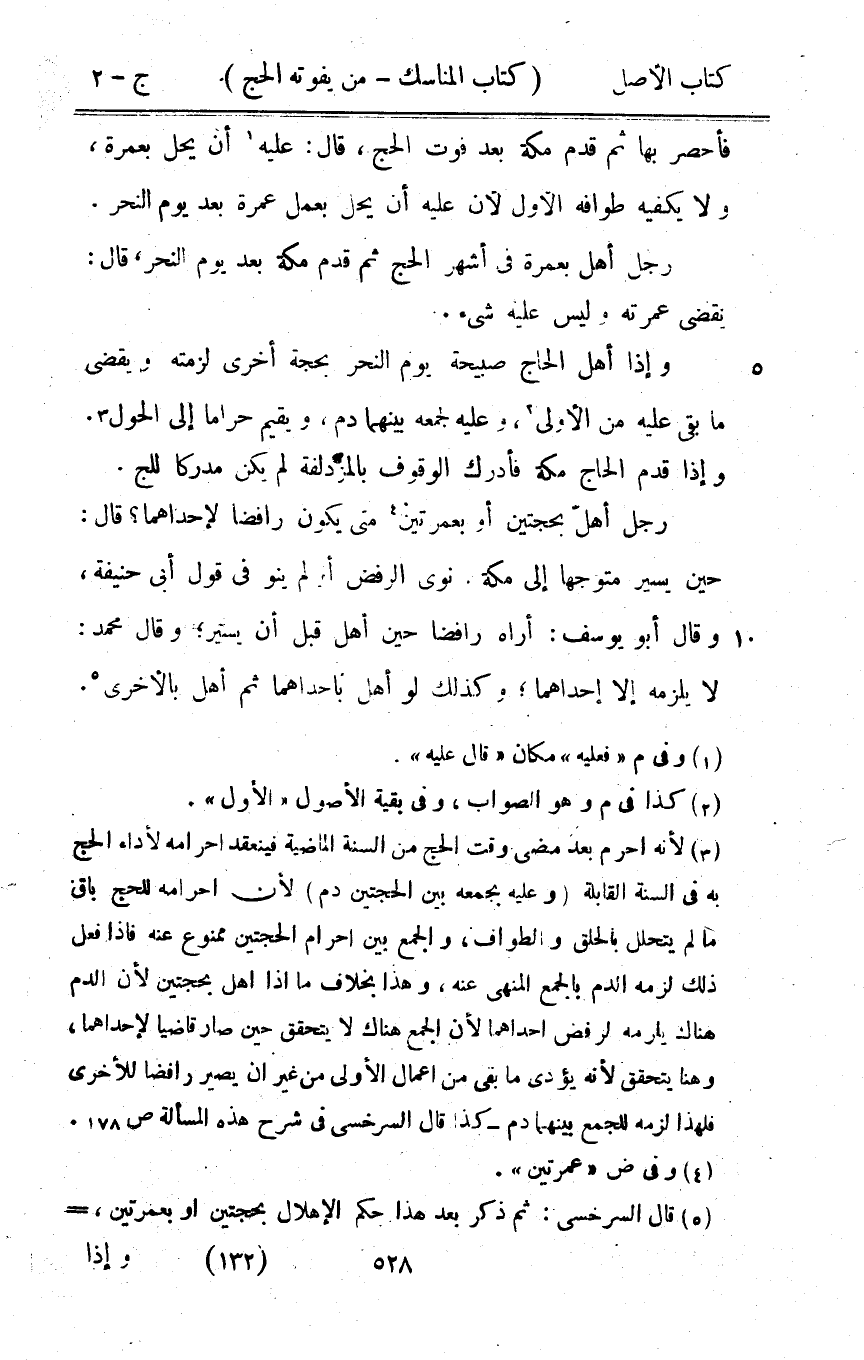 كتاب الأصل ( كتاب المناسك – من يفوته الحج ) ج – ٢
فأحصر بها ثم قدم مكة بعد فوت الحج ، قال : عليه ١ أن يحل بعمرة ،
و لا يكفيه طوافه الأول لأن عليه أن يحل بعمل عمرة بعد يوم النحر .
رجل أهل بعمرة فى أشهر الحج ثم قدم مكة بعد يوم النحر ، قال :
يقضى عمرته و ليس عليه شىء .
٥ و إذا أهل الحاج صبيحة يوم النحر بحجة أخرى لزمته و يقضى
ما بقى عليه من الأولى ٢ ، و عليه لجمعه بينهما دم ، و يقيم حراما إلى الحول ٣ .
و إذا قدم الحاج مكة فأدرك الوقوف بالمزدلفة لم يكن مدركا للج .
رجل أهلّ بحجتين أو بعمرتين ٤ متى يكون رافضا لإحداهما ؟ قال :
حين يسير متوجها إلى مكة . نوى الرفض أم لم ينو فى قول أبى حنيفة ،
١٠ و قال أبو يوسف : أراه رافضا حين أهل قبل أن يسير ؛ و قال محمد :
لا يلزمه إلا إحداهما ؛ و كذلك لو أهل باحداهما ثم أهل بالأخرى ٥ .
(١) و فى م « فعليه » مكان « قال عليه » .
(٢) كذا فى م و هو الصواب ، و فى بقية الأصول « الأول » .
(٣) لأنه احرم بعد مضى وقت الحج من السنة الماضية فينعقد احرامه لأداء الحج
به فى السنة القابلة ( و عليه بجمعه بين الحجتين دم ) لأن احرامه للحج باق
ما لم يتحلل بالحلق و الطواف ، و الجمع بين احرام الحجتين ممنوع عنه فاذا فعل
ذلك لزمه الدم بالجمع المنهى عنه ، و هذا بخلاف ما اذا اهل بحجتين لأن الدم
هناك يلزمه لرفض احداهما لأن الجمع هناك لا يتحقق حين صار قاضيا لإحداهما ،
و هنا يتحقق لأنه يؤدى ما بقى من اعمال الأولى من غير ان يصير رافضا للأخرى
فلهذا لزمه للجمع بينهما دم – كذا قال السرخسى فى شرح هذه المسألة ص ١٧٨ .
(٤) و فى ض « عمرتين » .
(٥) قال السرخسى : ثم ذكر بعد هذا حكم الإهلال بحجتين او بعمرتين ، =
٥٢٨ (١٣٢) و إذا